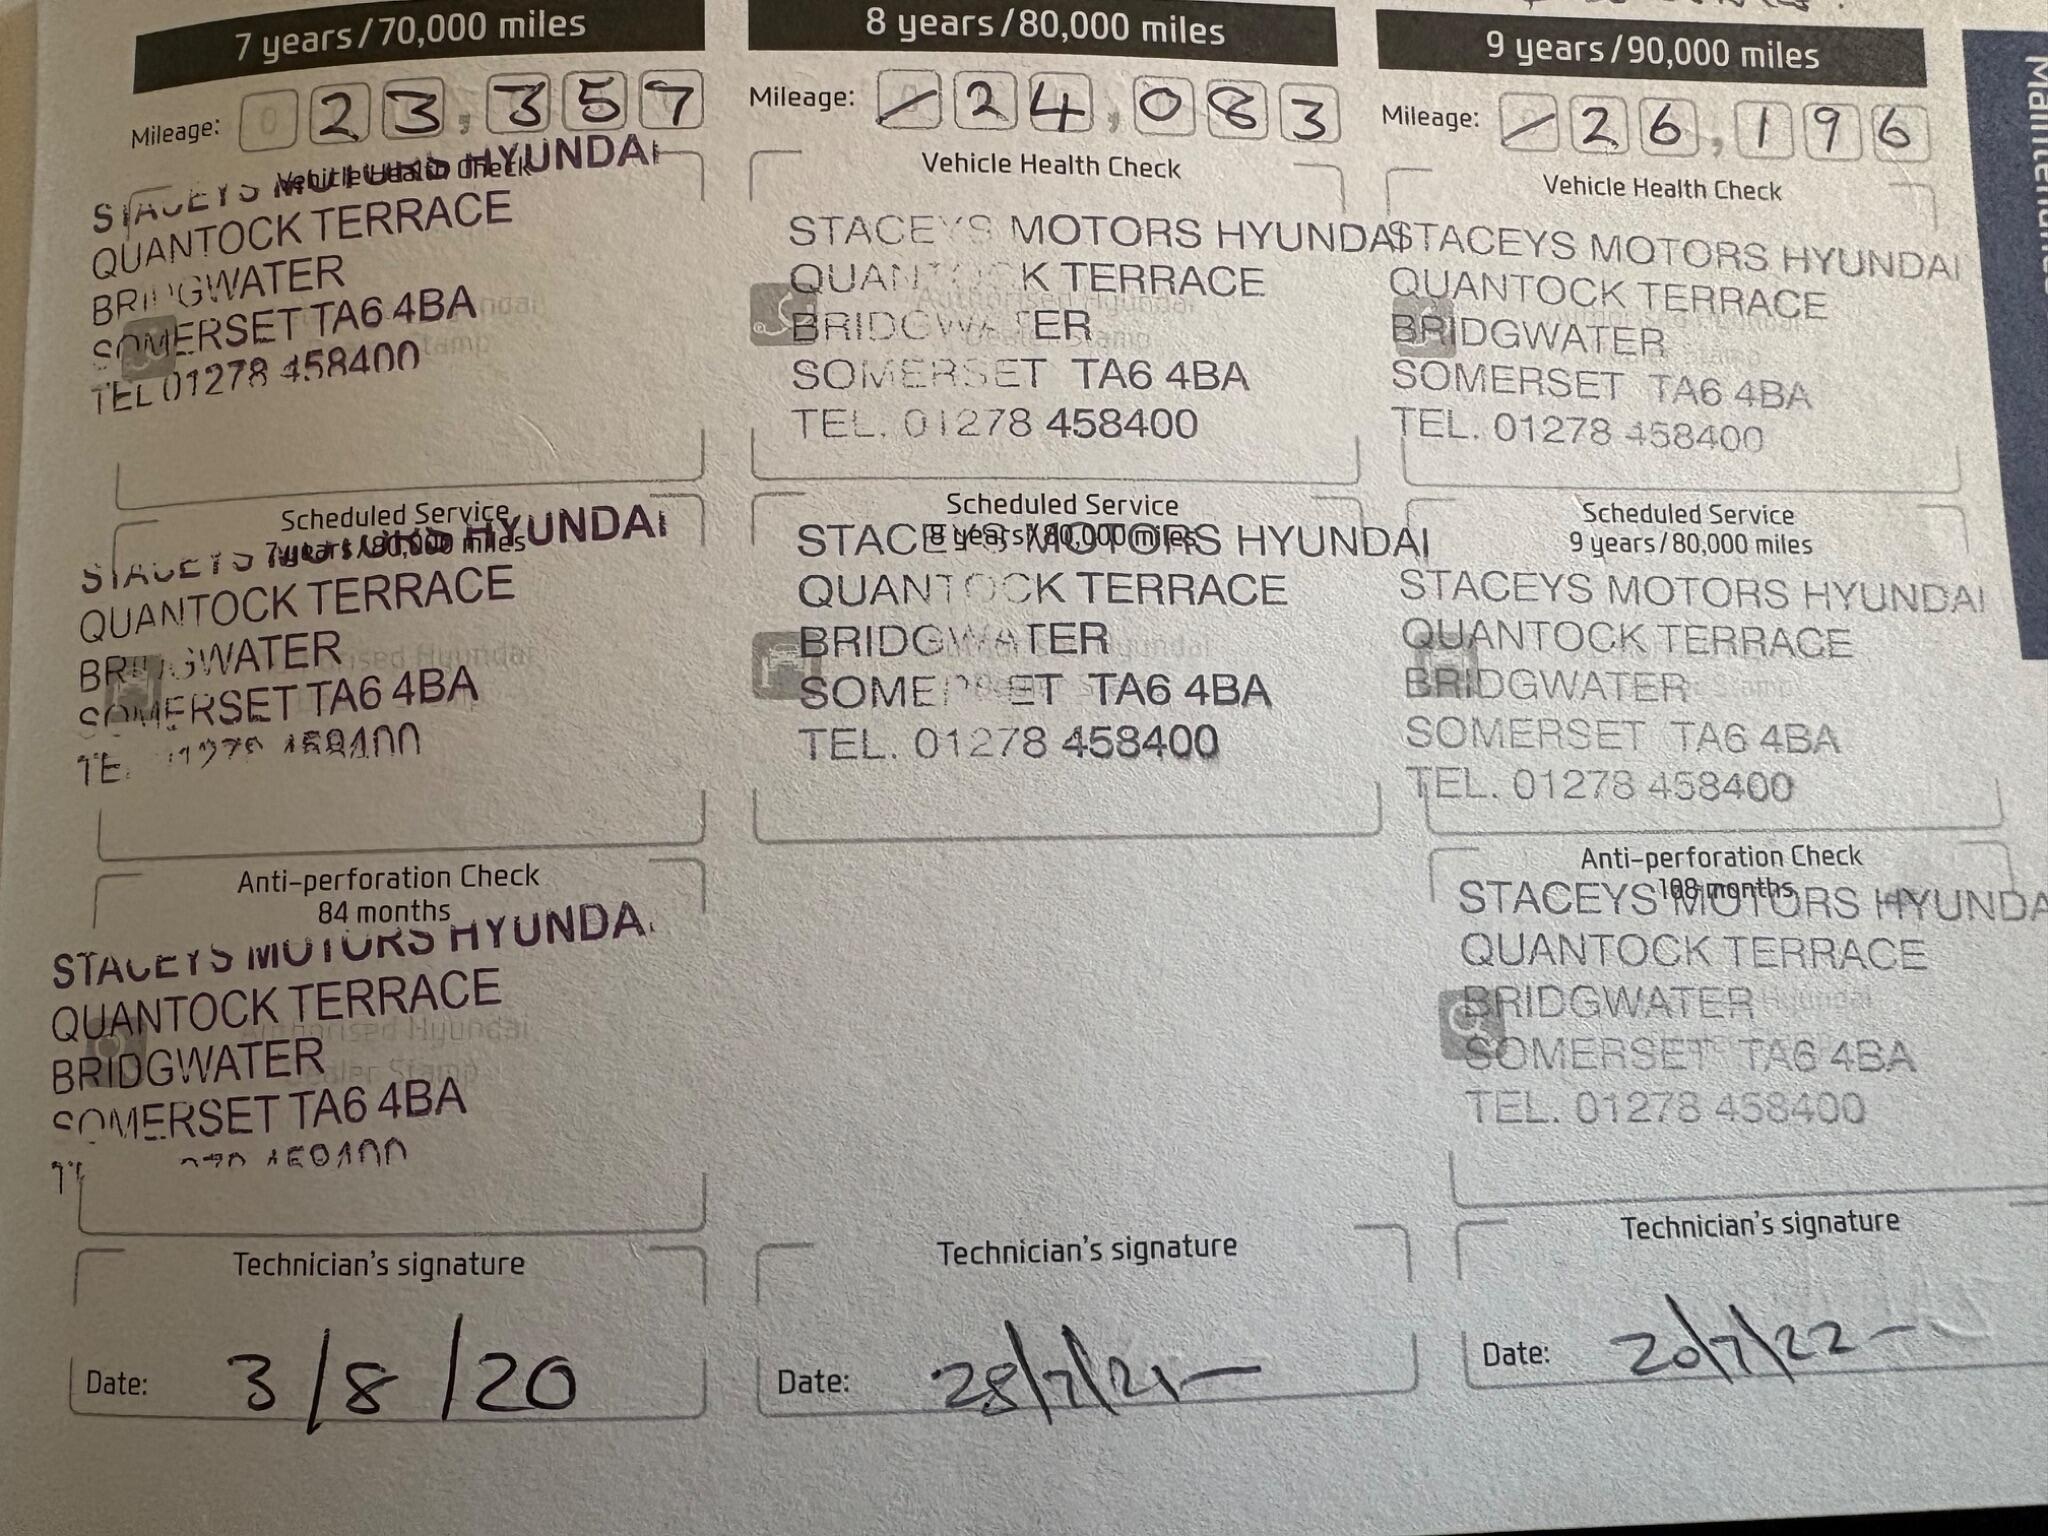 7 years/70,000 miles
Mileage: 0 23,357
Vehicle Health Check
STACEYS MOTORS HYUNDAI
QUANTOCK TERRACE
BRIDGWATER
SOMERSET TA6 4BA
TEL 01278 458400
Scheduled Service
7 years/80,000 miles
STACEYS MOTORS HYUNDAI
QUANTOCK TERRACE
BRIDGWATER
SOMERSET TA6 4BA
TEL 01278 458400
Anti-perforation Check
84 months
STACEYS MOTORS HYUNDAI
QUANTOCK TERRACE
Authorised Hyundai
BRIDGWATER
Dealer Stamp
SOMERSET TA6 4BA
Technician's signature
Date: 3/8/20
8 years/80,000 miles
Mileage: 24,083
Vehicle Health Check
STACEYS MOTORS HYUNDAI
QUANTOCK TERRACE
Authorised Hyundai
BRIDGWATER
Dealer Stamp
SOMERSET TA6 4BA
TEL. 01278 458400
Scheduled Service
8 years/80,000 miles
STACEYS MOTORS HYUNDAI
QUANTOCK TERRACE
BRIDGWATER
SOMERSET TA6 4BA
TEL. 01278 458400
Technician's signature
Date: 28/7/21
9 years/90,000 miles
Mileage: 26,196
Vehicle Health Check
STACEYS MOTORS HYUNDAI
QUANTOCK TERRACE
BRIDGWATER
SOMERSET TA6 4BA
TEL. 01278 458400
Scheduled Service
9 years/80,000 miles
STACEYS MOTORS HYUNDAI
QUANTOCK TERRACE
BRIDGWATER
SOMERSET TA6 4BA
TEL. 01278 458400
Anti-perforation Check
108 months
STACEYS MOTORS HYUNDA
QUANTOCK TERRACE
BRIDGWATER
SOMERSET TA6 4BA
TEL. 01278 458400
Technician's signature
Date: 20/7/22